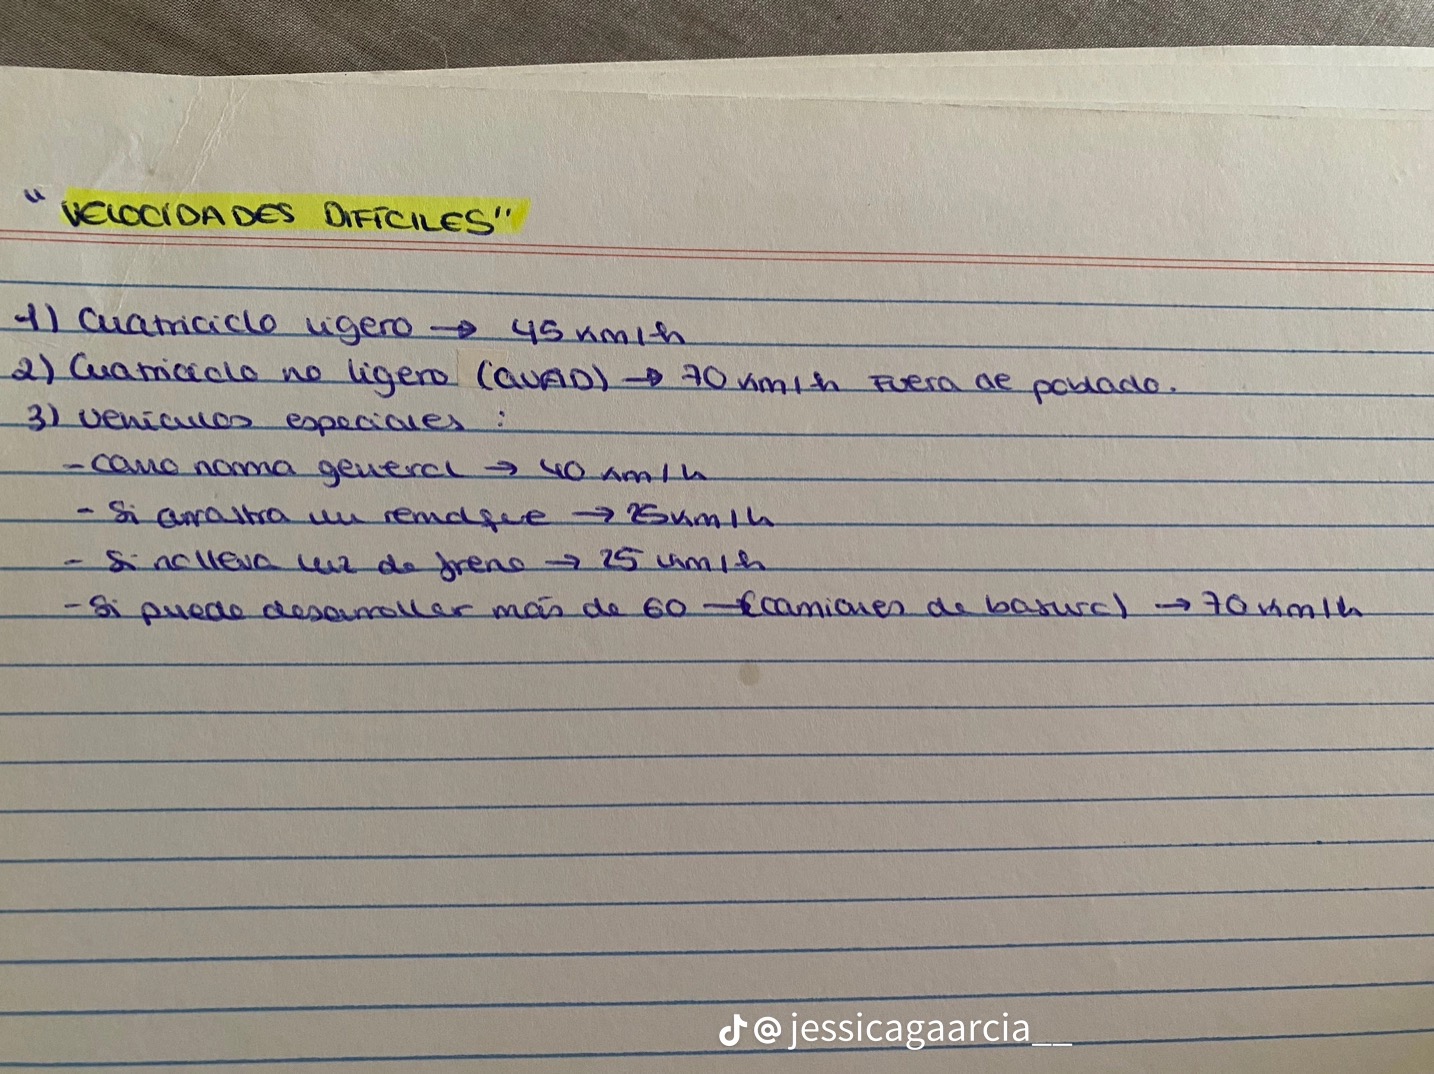 "VELOCIDADES DIFÍCILES"
1) Cuatriciclo ligero → 45 km/h
2) Cuatriciclo no ligero (QUAD) → 70 km/h FUERA de poblado.
3) Vehículos especiales :
- como norma general → 40 km/h
- Si arrastra un remolque → 25 km/h
- Si no lleva luz de freno → 25 km/h
- Si puede desarrollar más de 60 → (camiones de basura) → 70 km/h
@jessicagaarcia__